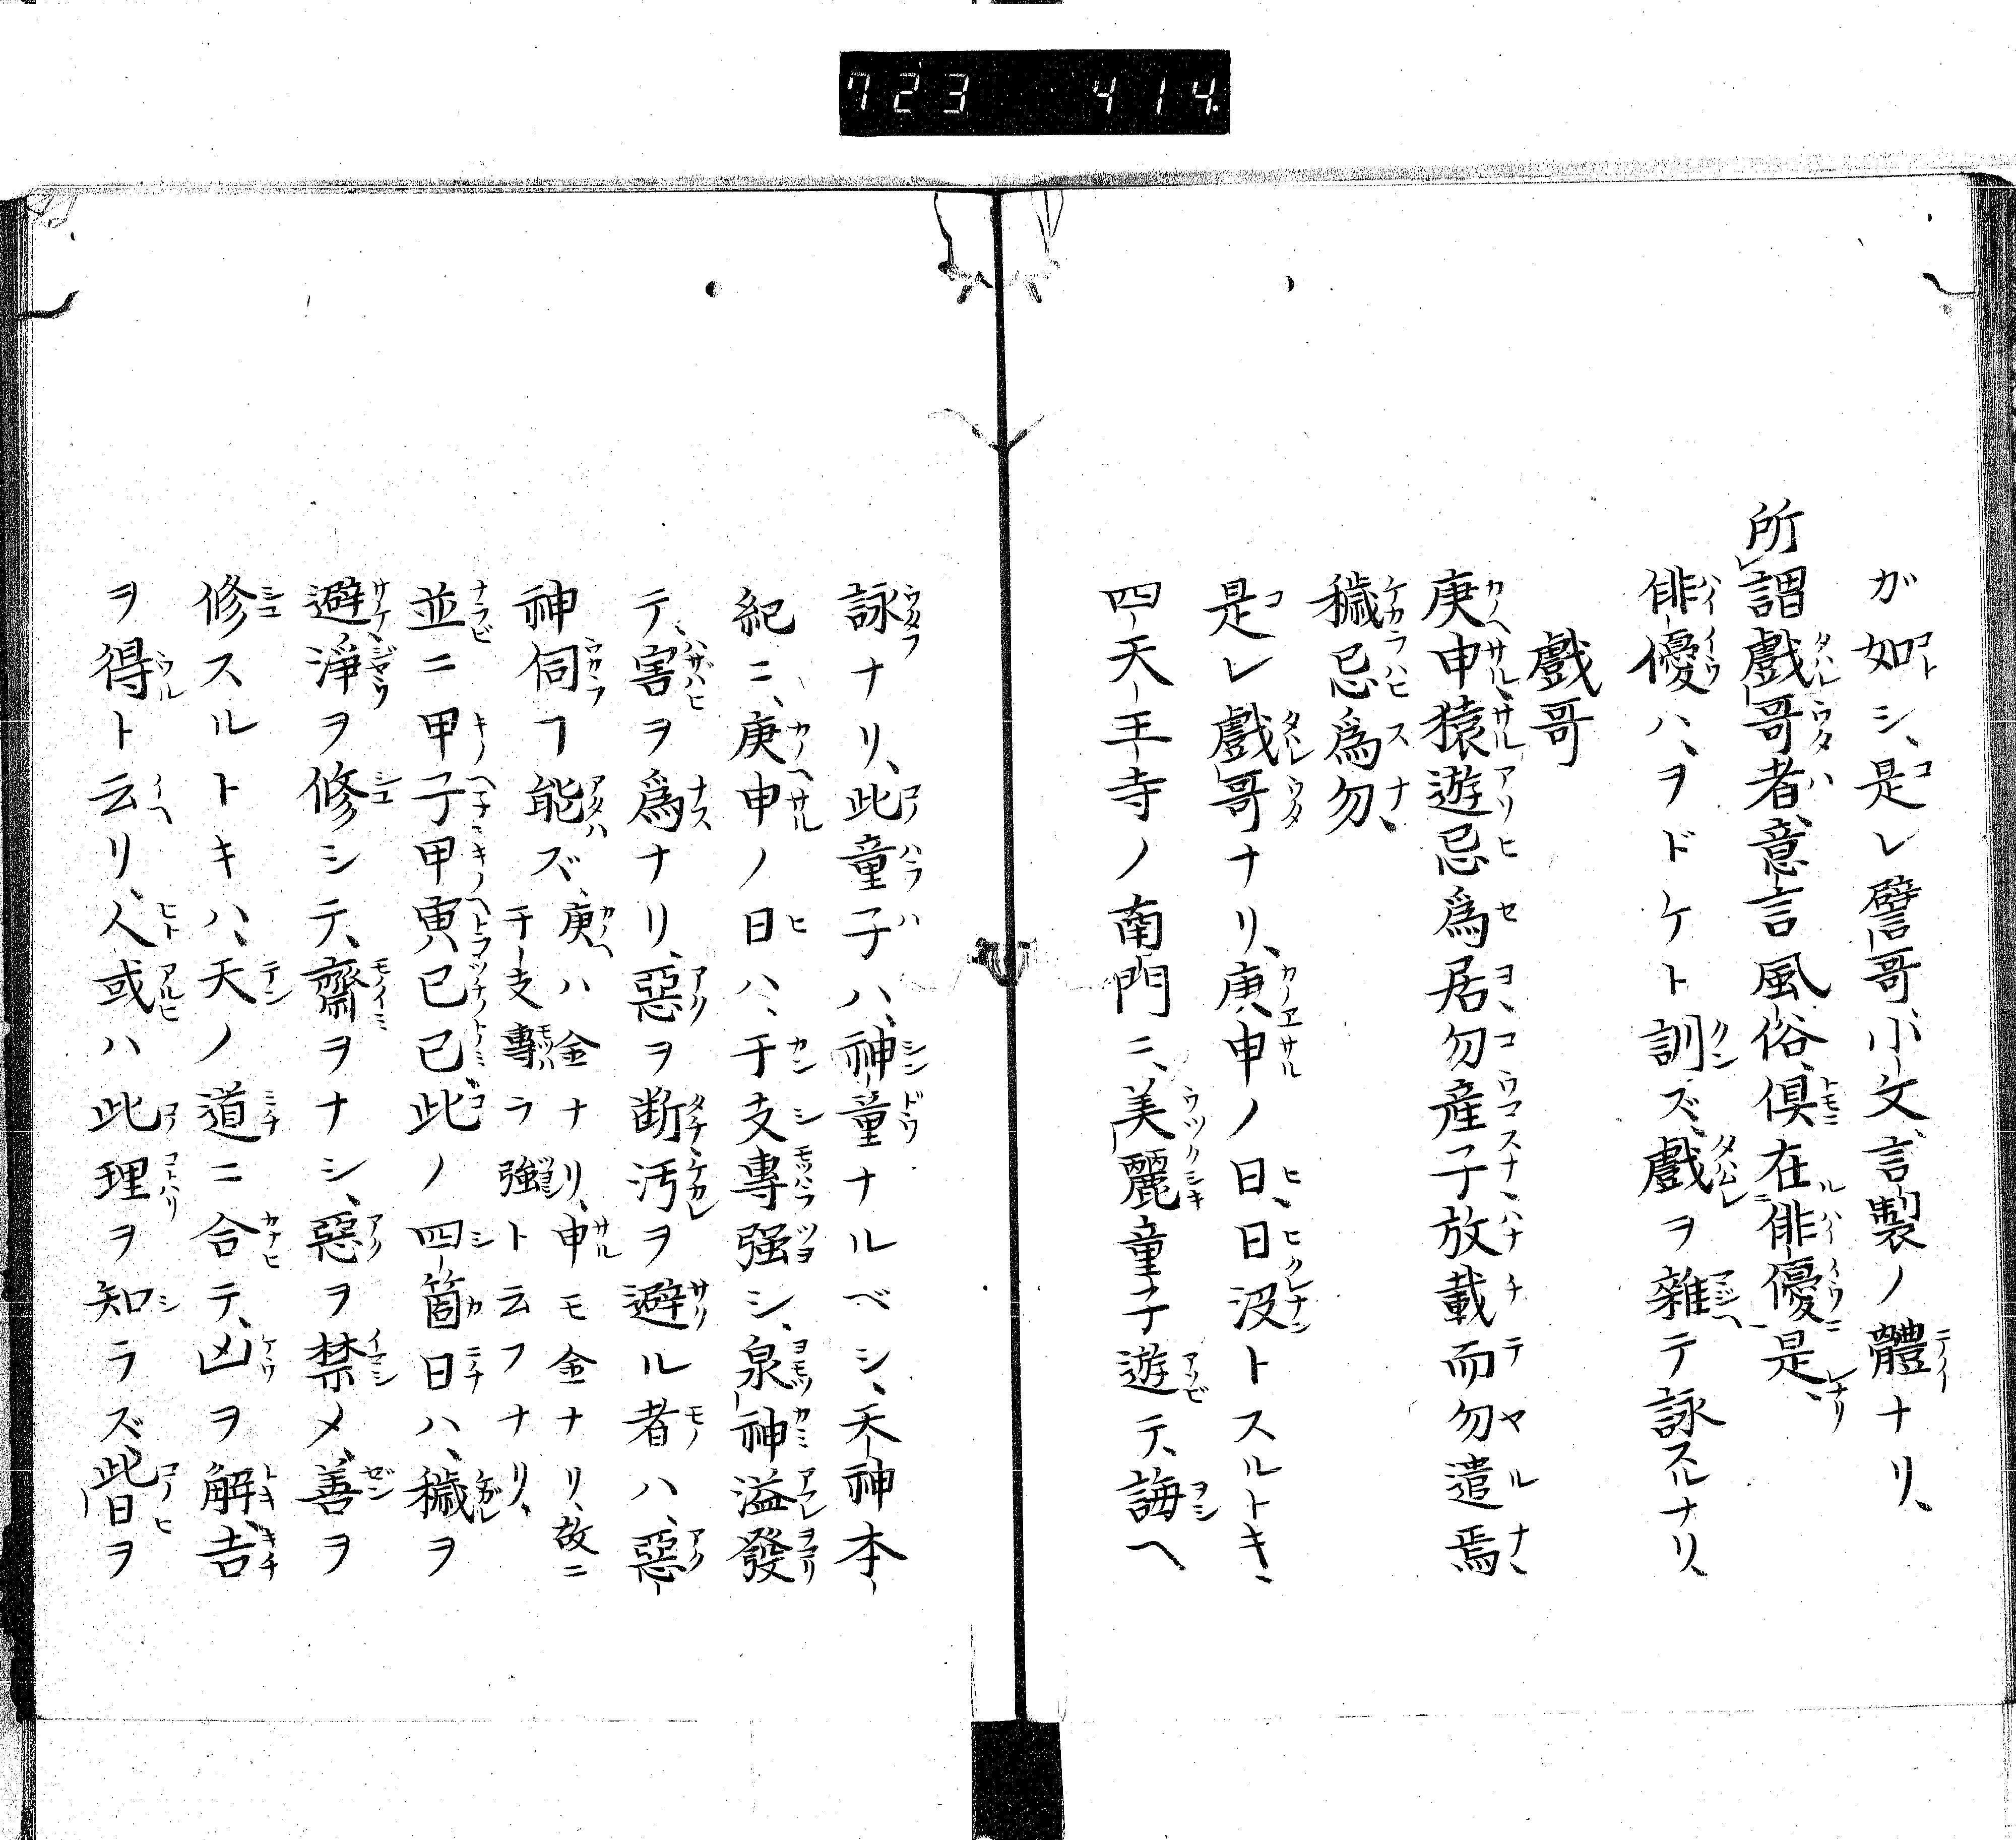 723 414
ガ如シ、是レ譬哥、小文、言製ノ體ナリ、
所謂戲哥者、意言風俗、倶在俳優是、
俳優ハ、ヲドケト訓ズ、戲ヲ雜テ詠スルナリ、
戲哥
庚申猿遊忌爲居勿産子放載而勿遣焉
穢忌爲勿
是レ戲哥ナリ、庚申ノ日、日没トスルトキ、
四天王寺ノ南門ニ、美麗童子遊テ、誨ヘ
詠ナリ、此童子ハ、神童ナルベシ、天神本
紀ニ、庚申ノ日ハ、干支專强シ、泉神溢發
テ、害ヲ爲ナリ、惡ヲ断汚ヲ避ル者ハ、惡
神伺フ能ズ、庚ハ金ナリ、申モ金ナリ、故ニ
干支專ラ強ト云フナリ、
並ニ甲子甲寅、巳已此ノ四箇日ハ、穢ヲ
避、淨ヲ修シテ、齋ヲナシ、惡ヲ禁メ、善ヲ
修スルトキハ、天ノ道ニ合テ、凶ヲ解、吉
ヲ得ト云リ、人或ハ此理ヲ知ラズ、此日ヲ